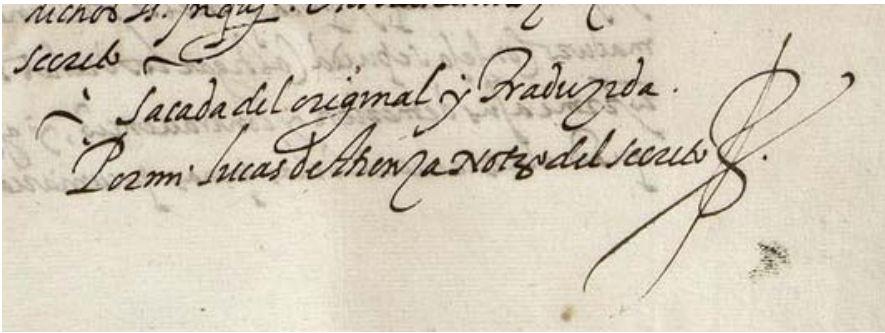 dichos ss. Inqqs.
secreto
Sacada del original y Traduzida.
Por mi Lucas de Atienza Notº del secreto